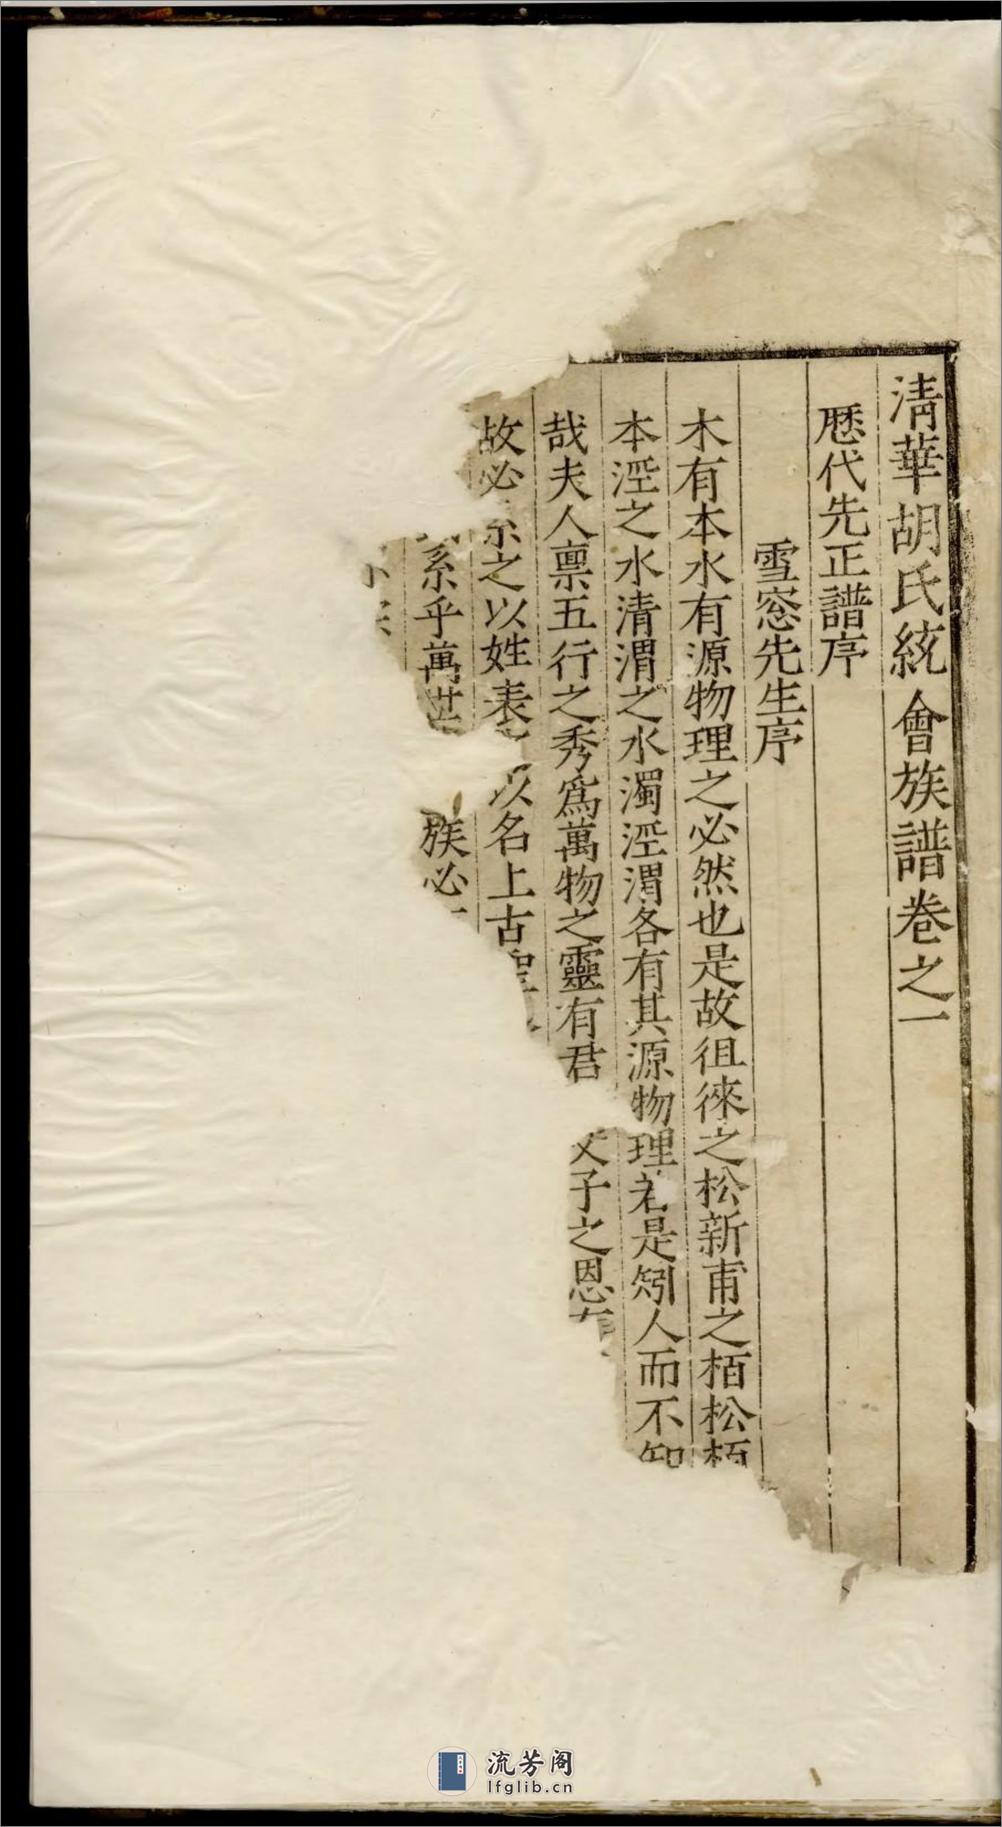 清華胡氏統會族譜卷之一
歷代先正譜序
雪窓先生序
木有本水有源物理之必然也是故徂徠之松新甫之栢松栢
本淫之水清渭之水濁淫渭各有其源物理若是矧人而不知
哉夫人禀五行之秀為萬物之靈有君 父子之恩有
故必系之以姓表 以名上古聖
系乎萬世 族必
流芳阁
lfglib.cn